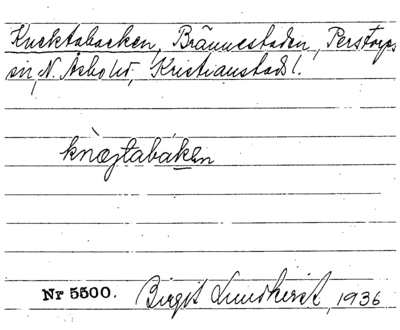 Knektabacken, Brännestaden, Perstorps
sn, N. Åsbo hd, Kristianstads l.
knæ̀jtabáken
Nr 5500. Birgit Lundkvist, 1936